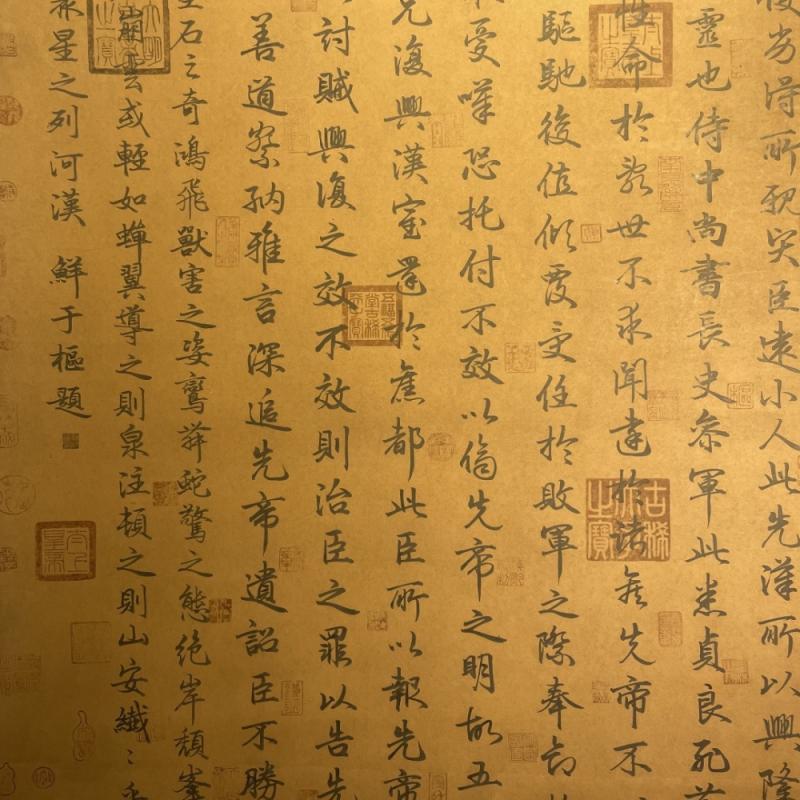 優劣得所親賢臣遠小人此先漢所以興隆
靈也侍中尚書長史參軍此悉貞良死節
性命於亂世不求聞達於諸侯先帝不
驅馳後值傾覆受任於敗軍之際奉命
憂嘆恐托付不效以傷先帝之明故五
兇復興漢室還於舊都此臣所以報先帝
討賊興復之效不效則治臣之罪以告先
善道察納雅言深追先帝遺詔臣不勝
石之奇鴻飛獸害之姿鸞舞蛇驚之態絕岸頹峯
崩雲或輕如蟬翼導之則泉注頓之則山安纖〻乎
眾星之列河漢 鮮于樞題